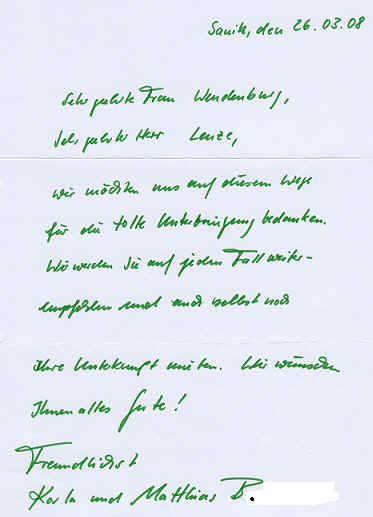 Sanitz, den 26.03.08
Sehr geehrte Frau Wendenburg,
Sehr geehrter Herr Lenze,
wir möchten uns auf diesem Wege
für die tolle Unterbringung bedanken.
Wir werden Sie auf jeden Fall weiter-
empfehlen und auch selbst noch
Ihre Unterkunft mieten. Wir wünschen
Ihnen alles Gute!
Freundlichst
Karla und Matthias B.